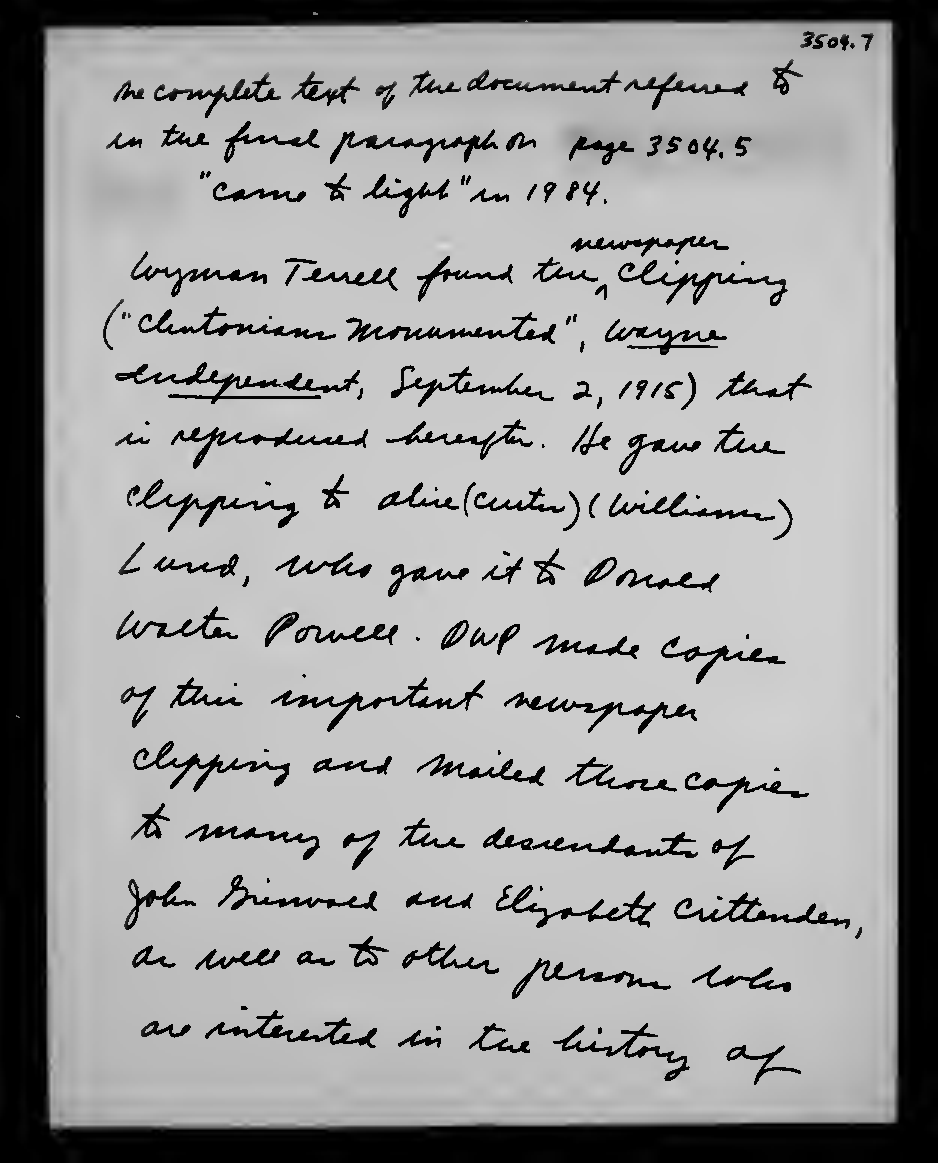 3504.7
The complete text of the document referred to
in the final paragraph on page 3504.5
"came to light" in 1984.
newspaper
Wyman Terrell found the ^ clipping
("Clintonians Monumented", Wayne
Independent, September 2, 1915) that
is reproduced hereafter. He gave the
clipping to Alice (Curtis) (Williams)
Lund, who gave it to Donald
Walter Powell. DWP made copies
of this important newspaper
clipping and mailed those copies
to many of the descendants of
John Griswold and Elizabeth Crittenden,
as well as to other persons who
are interested in the history of